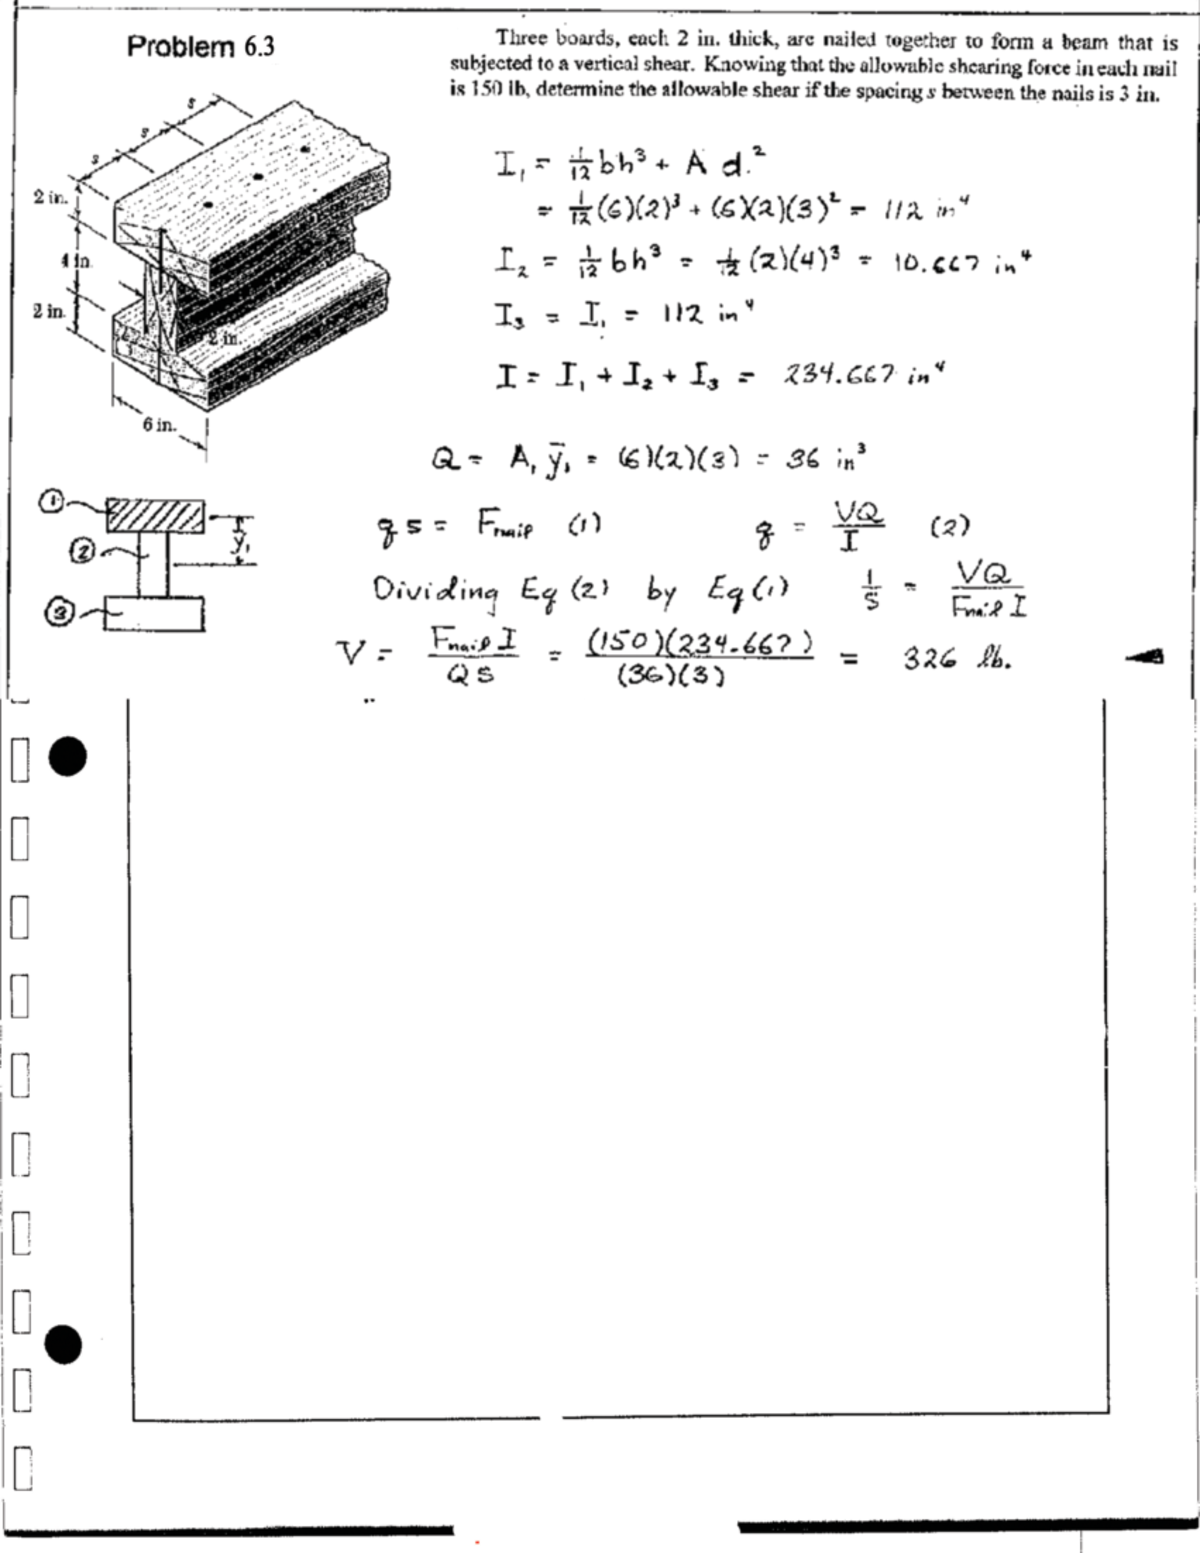 Problem 6.3
Three boards, each 2 in. thick, are nailed together to form a beam that is
subjected to a vertical shear. Knowing that the allowable shearing force in each nail
is 150 lb, determine the allowable shear if the spacing s between the nails is 3 in.
s
s
s
2 in.
4 in.
2 in.
2 in.
6 in.
I₁ = 1/12 bh³ + A d²
= 1/12 (6)(2)³ + (6)(2)(3)² = 112 in⁴
I₂ = 1/12 bh³ = 1/12 (2)(4)³ = 10.667 in⁴
I₃ = I₁ = 112 in⁴
I = I₁ + I₂ + I₃ = 234.667 in⁴
Q = A₁ ȳ₁ = (6)(2)(3) = 36 in³
① ② ③ ȳ₁
qs = Fnail (1) q = VQ/I (2)
Dividing Eq (2) by Eq (1) 1/s = VQ/Fnail I
V = Fnail I/Qs = (150)(234.667)/(36)(3) = 326 lb.